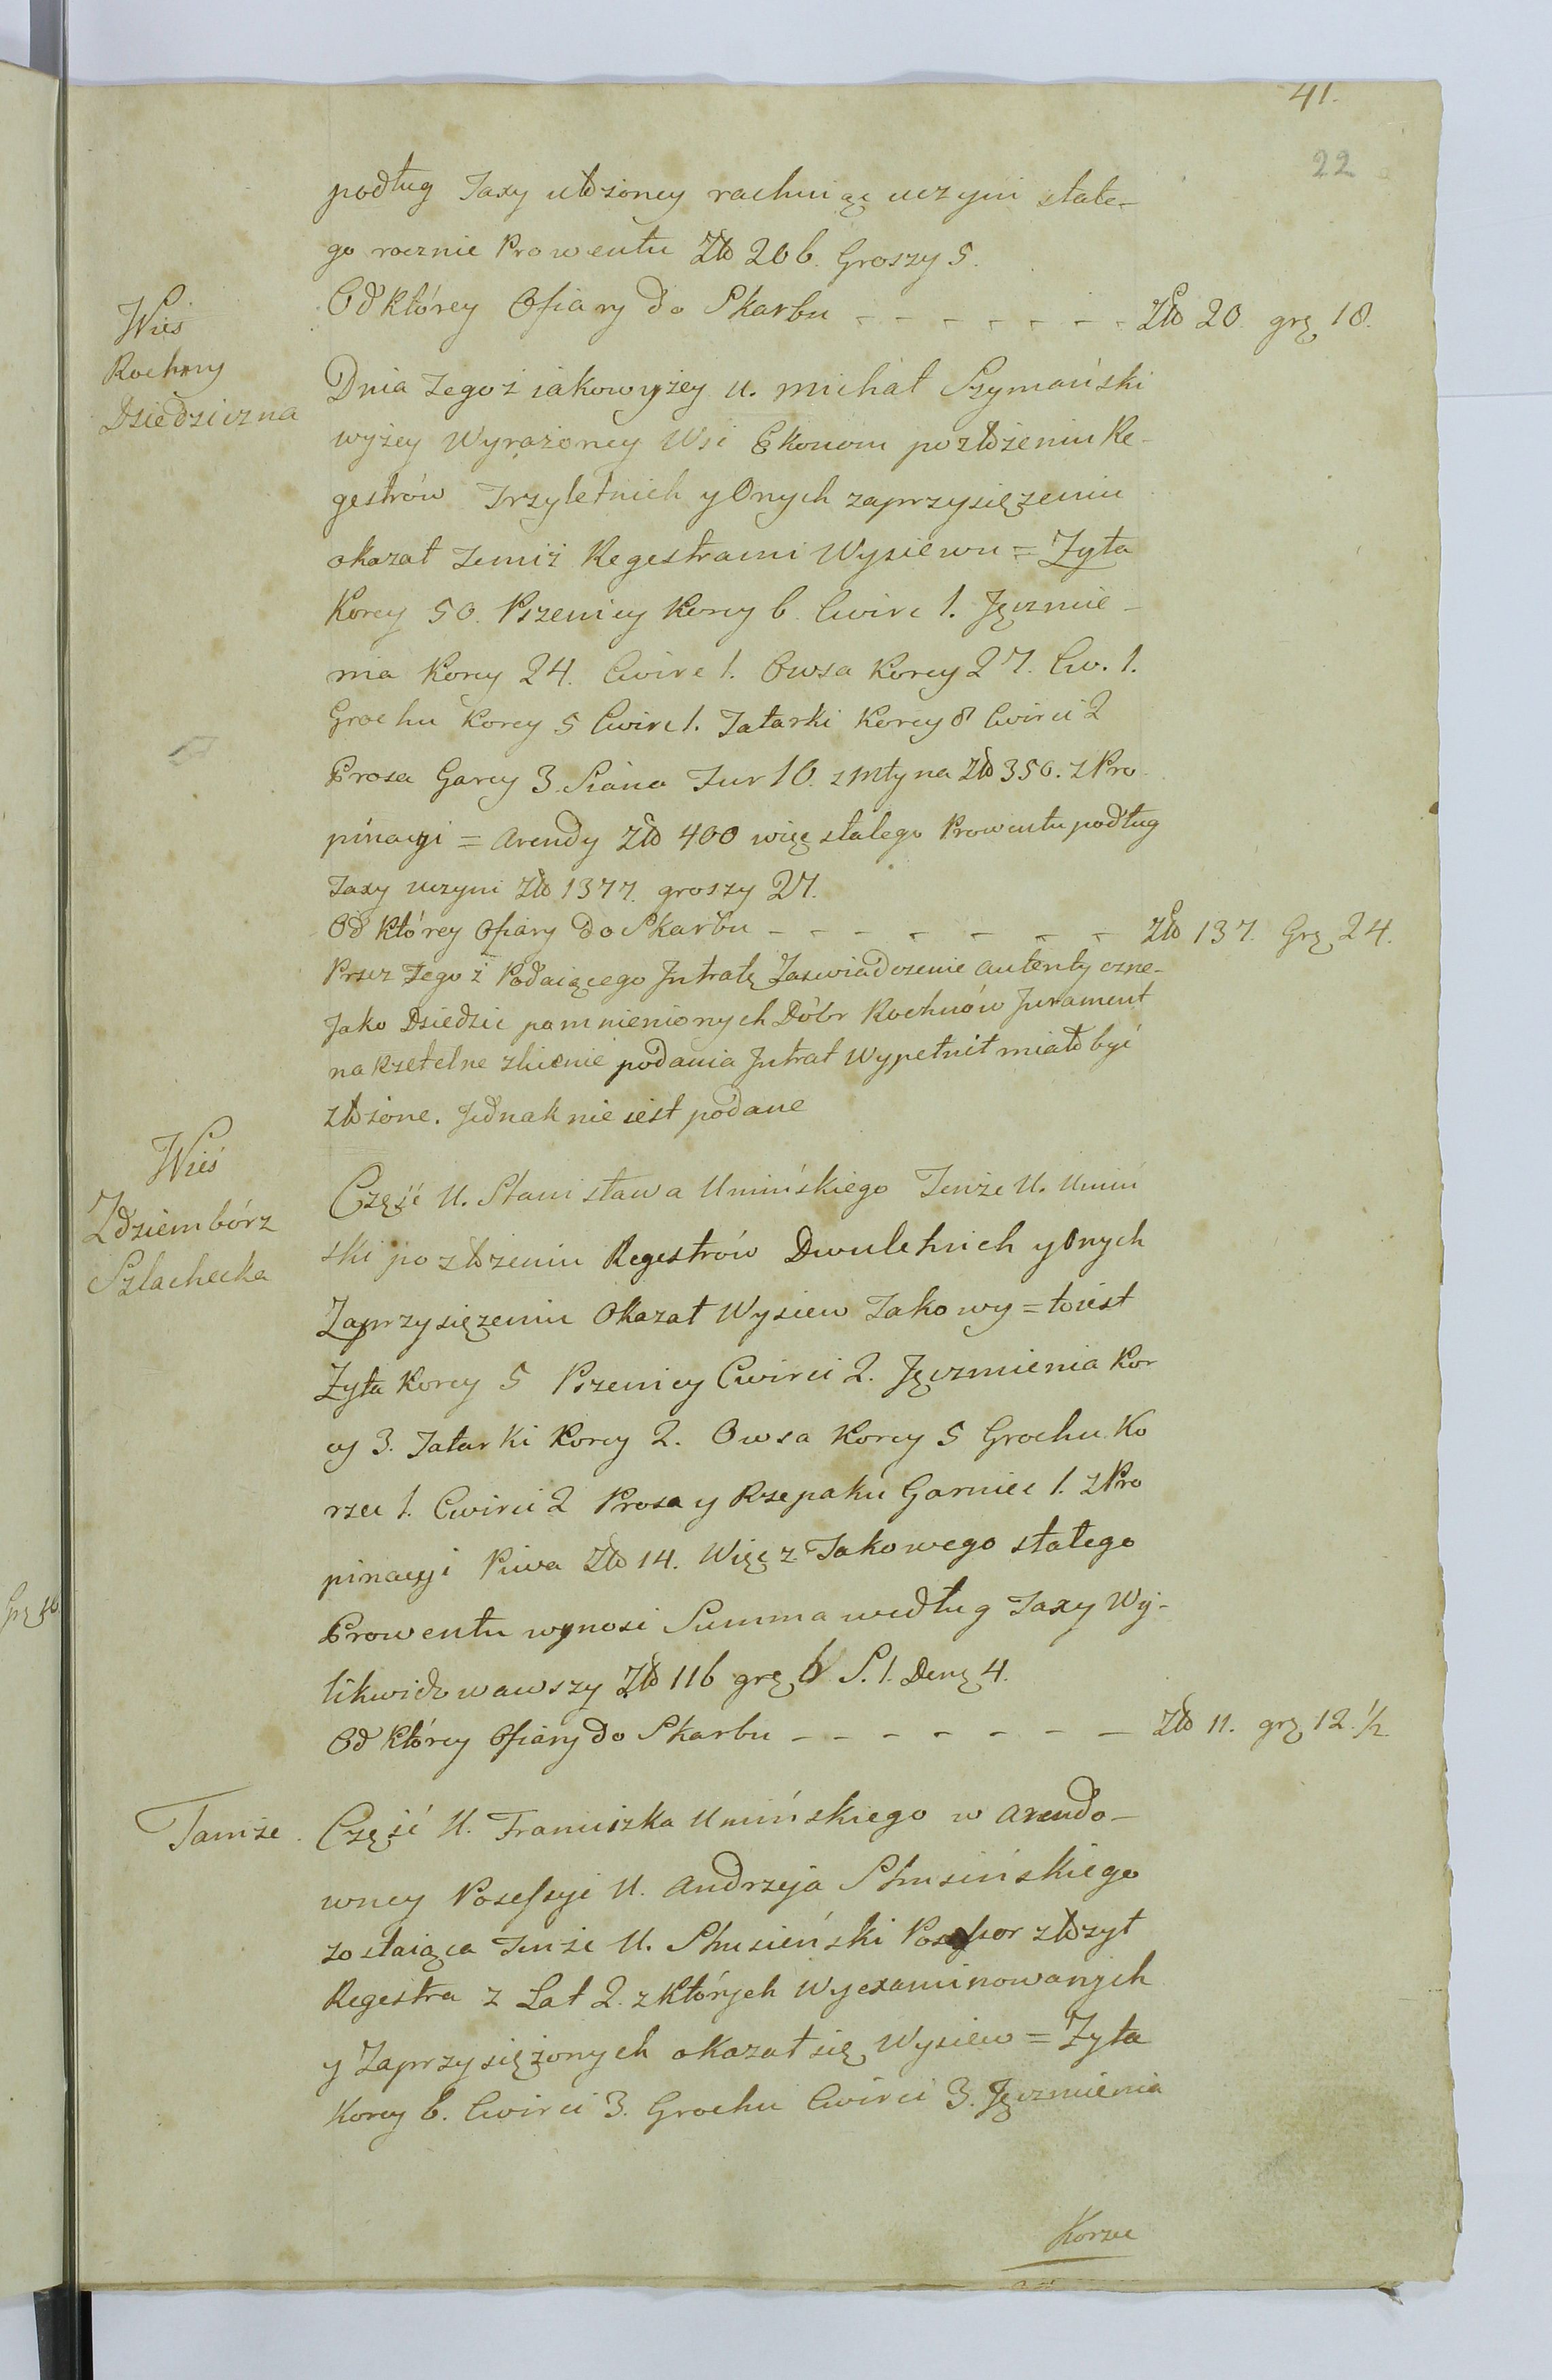 41.
22
podług Taxy ułożoney rachuiąc uczyni stałe-
go rocznie Prowentu Zło 206. Groszy 5.
Od którey Ofiary do Skarbu - - - - - - - Zło 20 grz 18.
Wieś
Rochny
Dziedziczna
Dnia Tegoż iakowyżey U. Michał Szymański
wyżey Wyrażoney Wsi Ekonom po złożeniu Re-
gestrów Trzyletnich y Onych zaprzysiężeniu
okazał Temiż Regestrami Wysiewu = Zyta
Korcy 50. Pszenicy Korcy 6. Cwirc 1. Jęczmie-
nia Korcy 24. Cwirc 1. Owsa Korcy 27. Cw. 1.
Grochu Korcy 5 Cwirc 1. Tatarki Korcy 8 Cwirci 2
Prosa Garcy 3 Siana Fur 10. z Młyna Zło 350. z Pro-
pinacyi = Arendy Zło 400 więc stałego Prowentu podług
Taxy uczyni Zło 1377. groszy 27.
Od którey Ofiary do Skarbu - - - - - - - - Zło 137. Grz 24.
Przez Tegoż Podaiącego Jntratę Zaswiadczenie autentyczne-
Jako Dziedzic pomnienionych Dóbr Rochnów Jurament
na Rzetelne podania Jntrat Wypełnił miało być
złożone. Jednak nie iest podane
Wieś
Zdziembórz
Szlachecka
Część U. Stanisława Umińskiego Tenże U. Umiń
ski po złożeniu Regestrów Dwuletnich y Onych
Zaprzysiężeniu Okazał Wysiew Takowy = toiest
Zyta Korcy 5 Pszenicy Cwirci 2. Jęczmienia Kor
cy 3. Tatarki Korcy 2. Owsa Korcy 5 Grochu Ko
rzec 1. Cwirci 2 Prosa y Rzepaku Garniec 1. z Pro
pinacyi Piwa Zło 14. Więc z Takowego stałego
Prowentu wynosi Summa według Taxy Wy-
likwidowawszy Zło 116 grz 6 S. 1. Denz 4.
Od którey Ofiary do Skarbu - - - - - - - Zło 11. grz 12. 1/2
Tamże.
Część U. Franciszka Umińskiego w Arendo-
wney Possessyi U. Andrzeja Słusińskiego
zostaiąca Tenże U. Słusieński Possessor złożył
Regestra z Lat 2. z których Wyexaminowanych
y Zaprzysiężonych okazał się Wysiew = Zyta
Korcy 6. Cwirci 3. Grochu Cwirci 3. Jęczmienia
Korzec